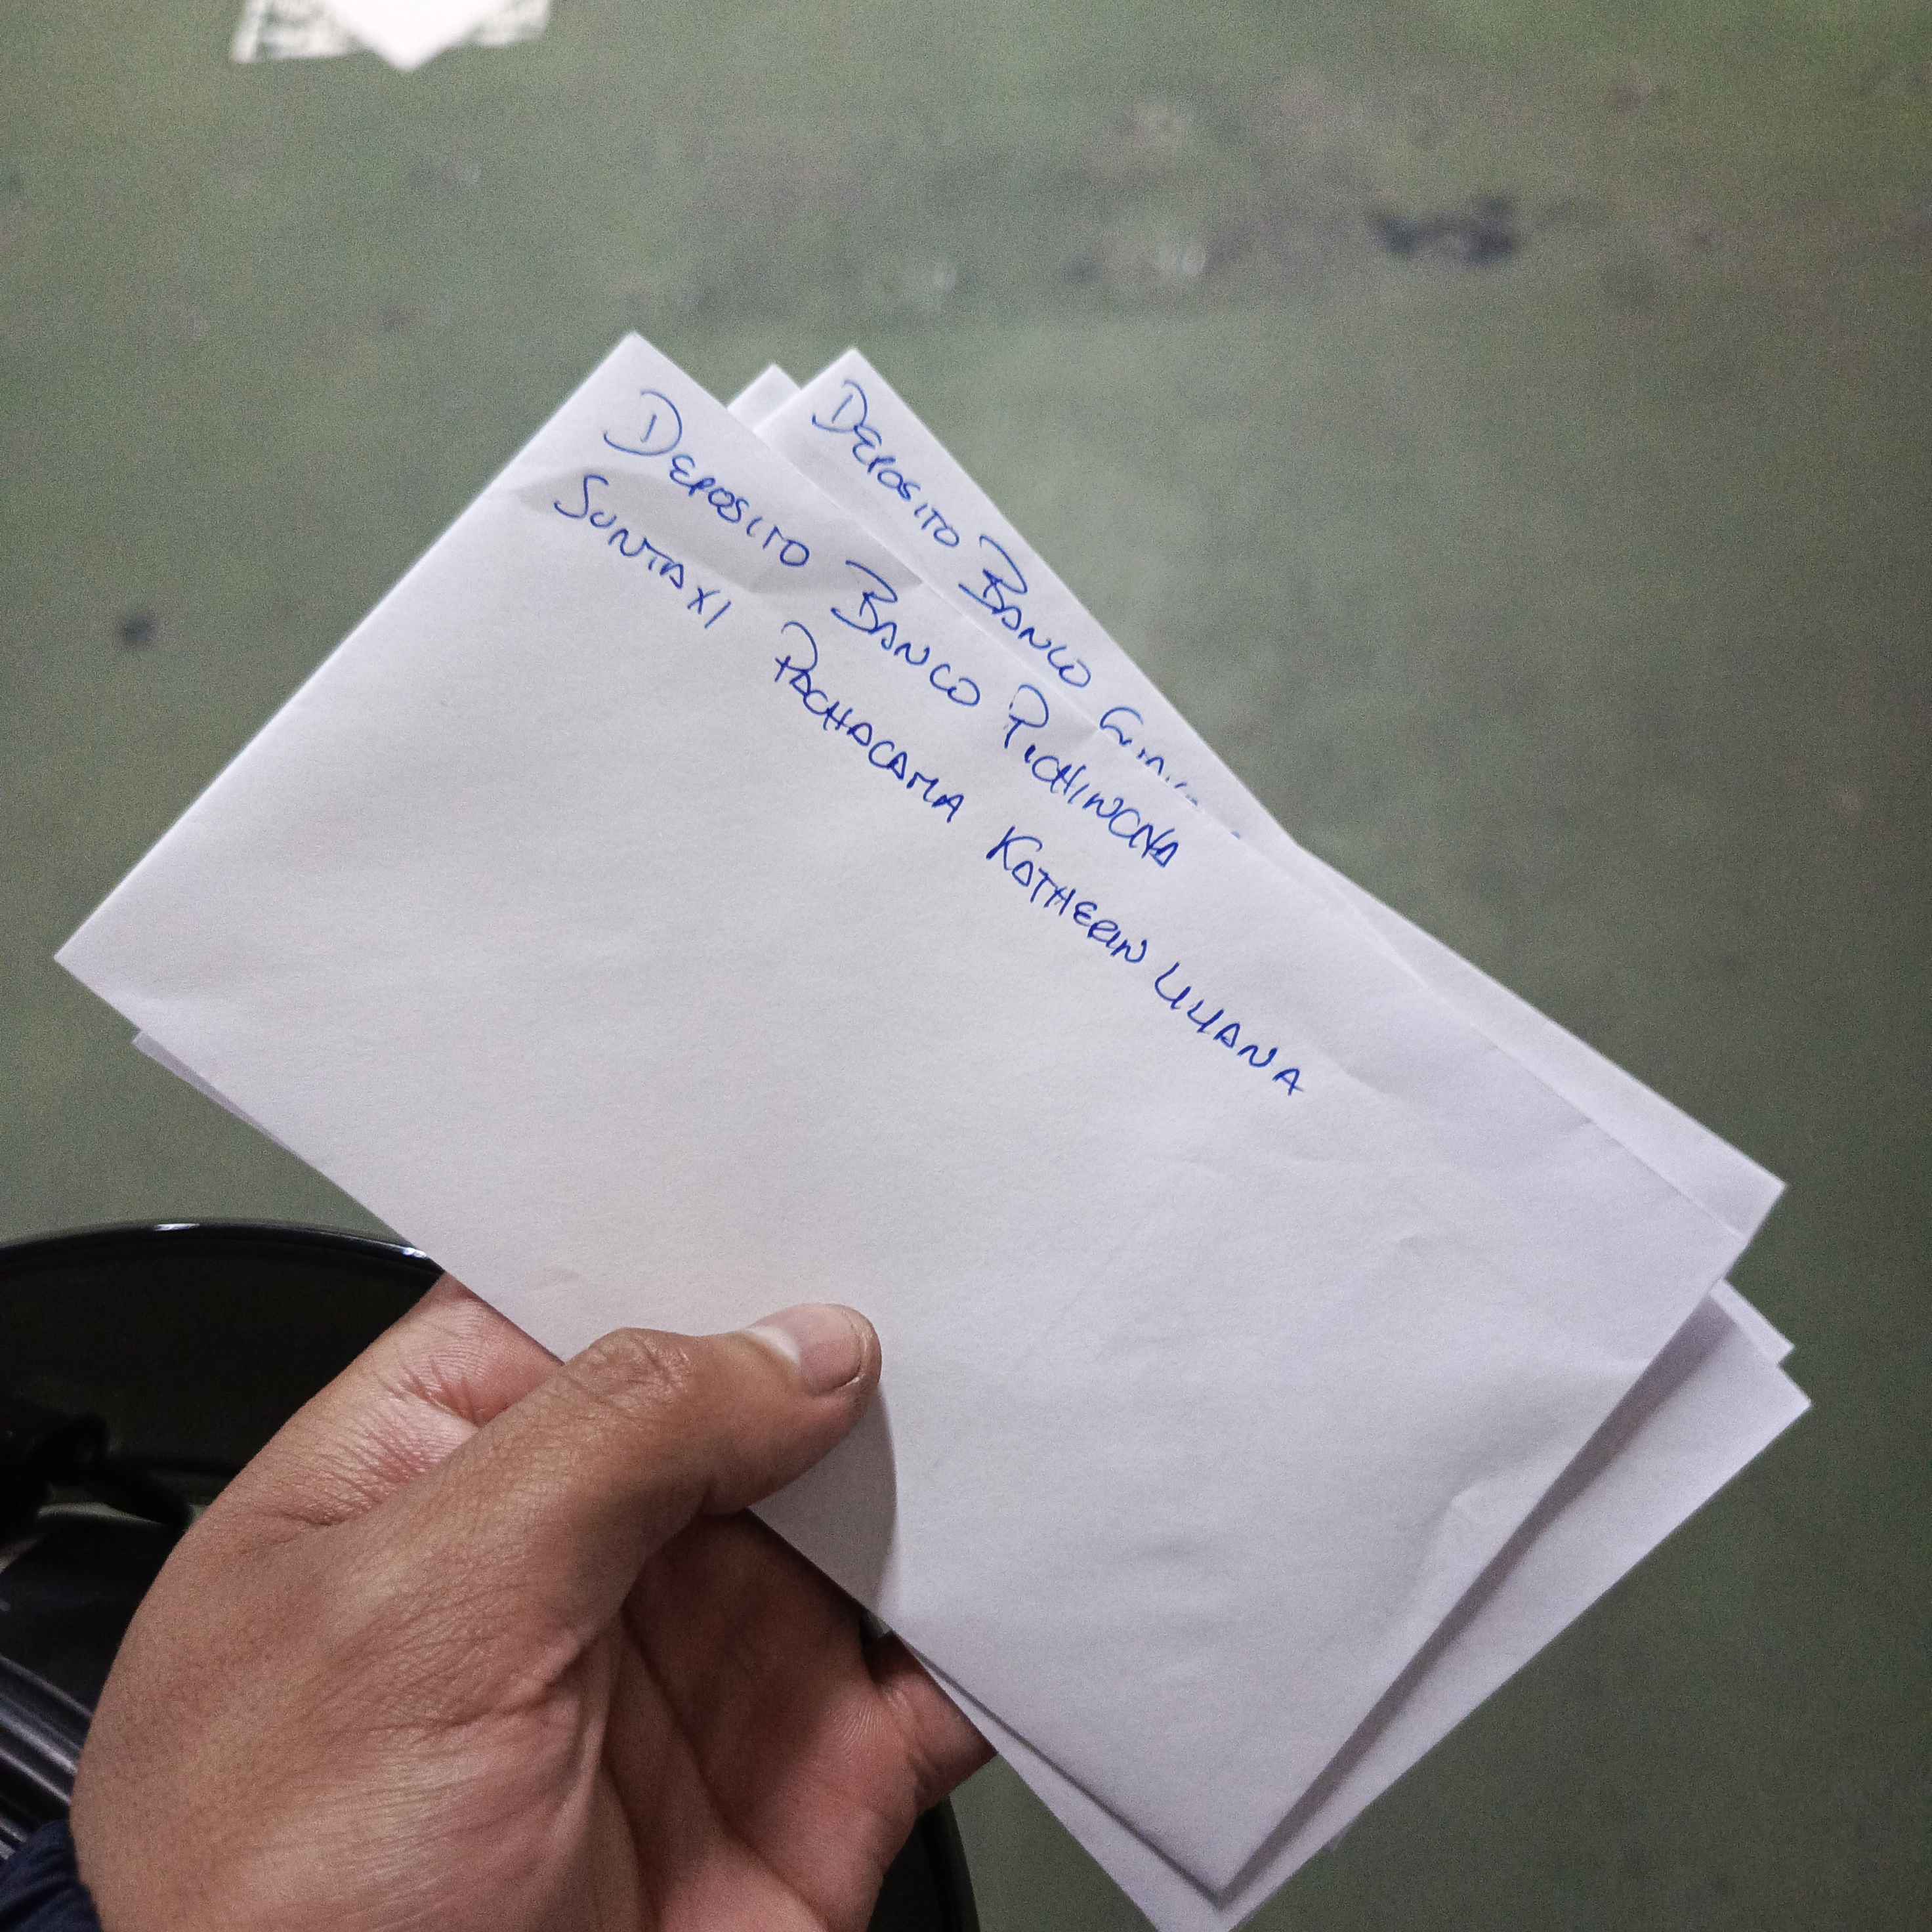 DEPOSITO BANCO PICHINCHA
SUNTAXI PACHACAMA KATHERIN LILIANA
DEPOSITO BANCO